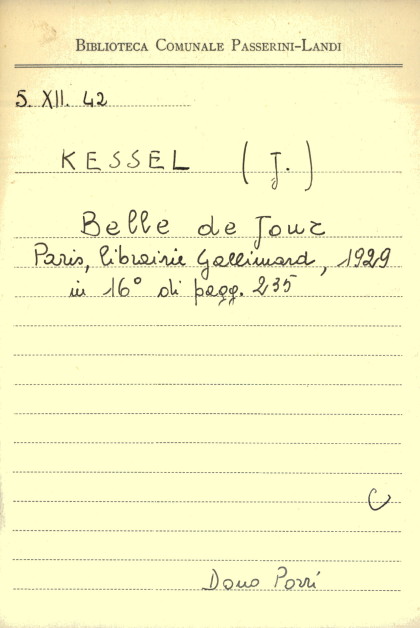 BIBLIOTECA COMUNALE PASSERINI-LANDI
5. XII. 42
KESSEL (J.)
Belle de Jour
Paris, librairie Gallimard, 1929
in 16° di pagg. 235
C
Dono Porri